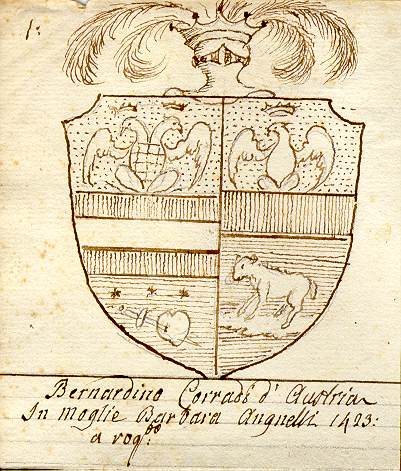 1:
Bernardino Corradi d'Austria
In moglie Barbara Angnelli 1423:
a rog: